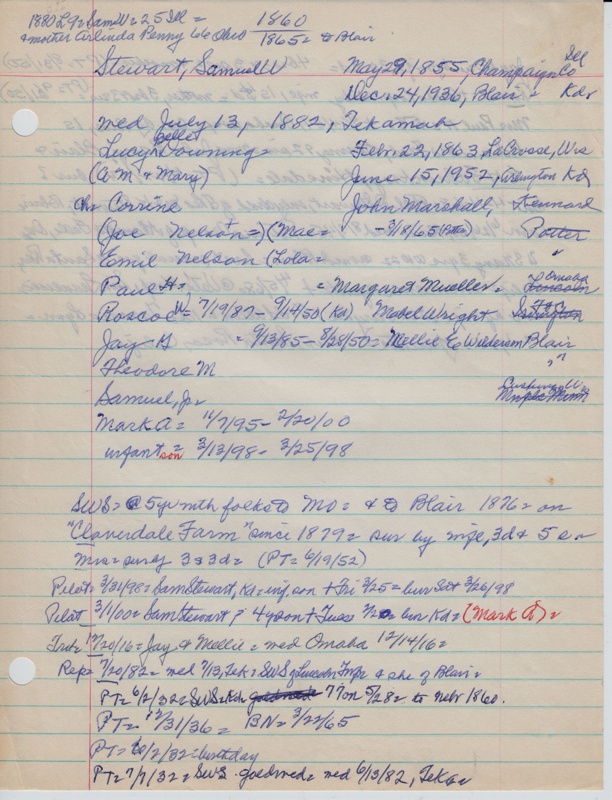 1880 L9 = Sam W = 25 Ill = 1860
& mother Arlinda Penny 66 Ohio 1865 = to Blair
Stewart, Samuel W May 29, 1855, Champaign Co Ill
Dec. 24, 1936, Blair = Kd
med July 13, 1882, Tekamah
Lucy Belle Downing = Febr. 22, 1863, LaCrosse, Wis
(A M & Mary) June 15, 1952, Arlington Kd
ch = Corrine John Marshall, Kennard
(Joe Nelson =) (Mae = - 3/8/65 Potter
Emil Nelson (Lola = "
Paul H = = Margaret Mueller = Omaha Lincoln
Roscoe W = 7/19/87 - 9/14/50 (Kd) Mabel Wright
Jay G = 9/13/85 - 8/28/50 = Mellie E Blair
Theodore M " "
Samuel, Jr =
Mark A = 11/7/95 - 2/20/00
infant son = 3/13/98 - 3/25/98
SWS = @ 5 yr with folks to Mo = & to Blair 1876 = on
"Cloverdale Farm" since 1879 = sur by wife, 3d & 5 s =
Mrs = sur by 3 s 3d = (PT = 6/19/52)
Pilot = 3/31/98 = Sam Stewart, Kd = inf. son + Fri 3/25 = bur Sat 3/26/98
Pilot 3/1/00 = Sam Stewart, 4 y son + Tues bur Kd = (Mark A) =
Trib = 12/20/16 = Jay & Mellie = med Omaha 12/14/16 =
Rep = 7/20/82 = med 7/13, Tek = SWS of & she of Blair =
PT = 6/2/32 = SWS = Kd 77 on 5/28 = to Nebr 1860.
PT = 12/31/36 = BN = 3/22/65
PT = 6/2/32 = birthday
PT = 7/7/32 = SWS goldwed = med 6/13/82, Teka =